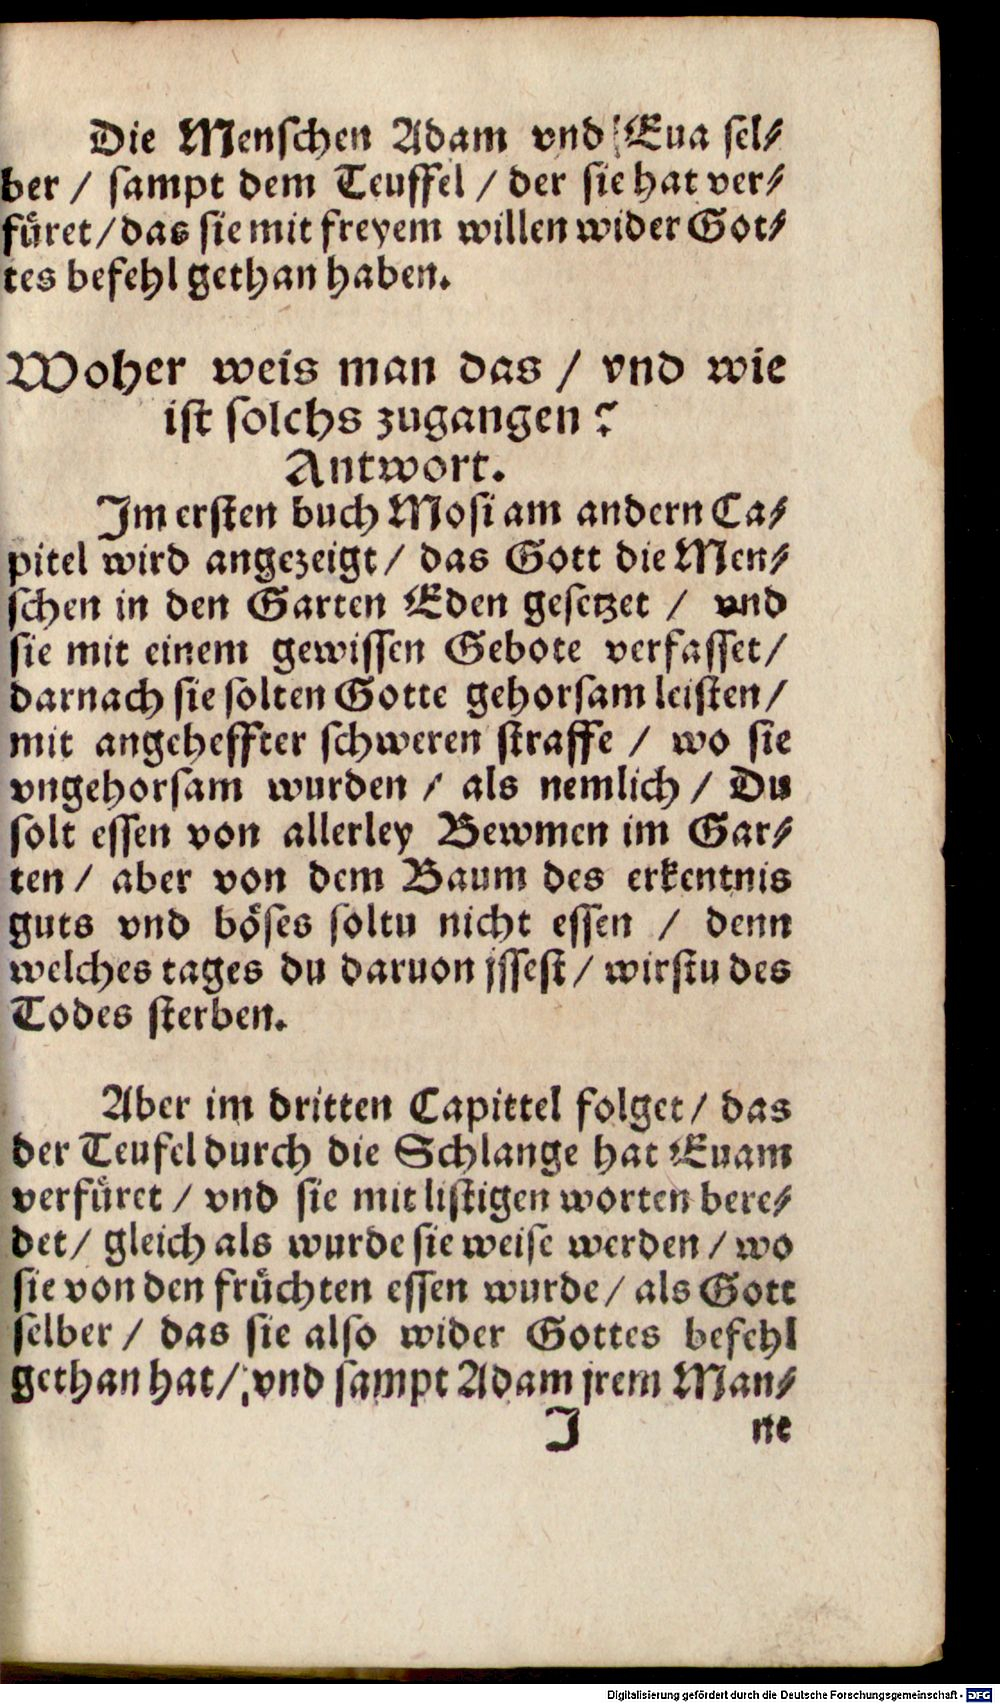 Die Menschen Adam vnd Eua sel-
ber / sampt dem Teuffel / der sie hat ver-
füret / das sie mit freyem willen wider Got-
tes befehl gethan haben.
Woher weis man das / vnd wie
ist solchs zugangen?
Antwort.
Im ersten buch Mosi am andern Ca-
pitel wird angezeigt / das Gott die Men-
schen in den Garten Eden gesetzet / vnd
sie mit einem gewissen Gebote verfasset /
darnach sie solten Gotte gehorsam leisten /
mit angeheffter schweren straffe / wo sie
vngehorsam wurden / als nemlich / Du
solt essen von allerley Bewmen im Gar-
ten / aber von dem Baum des erkentnis
guts vnd böses soltu nicht essen / denn
welches tages du daruon jssest / wirstu des
Todes sterben.
Aber im dritten Capittel folget / das
der Teufel durch die Schlange hat Euam
verfüret / vnd sie mit listigen worten bere-
det / gleich als wurde sie weise werden / wo
sie von den früchten essen wurde / als Gott
selber / das sie also wider Gottes befehl
gethan hat / vnd sampt Adam jrem Man-
J ne
Digitalisierung gefördert durch die Deutsche Forschungsgemeinschaft - DFG